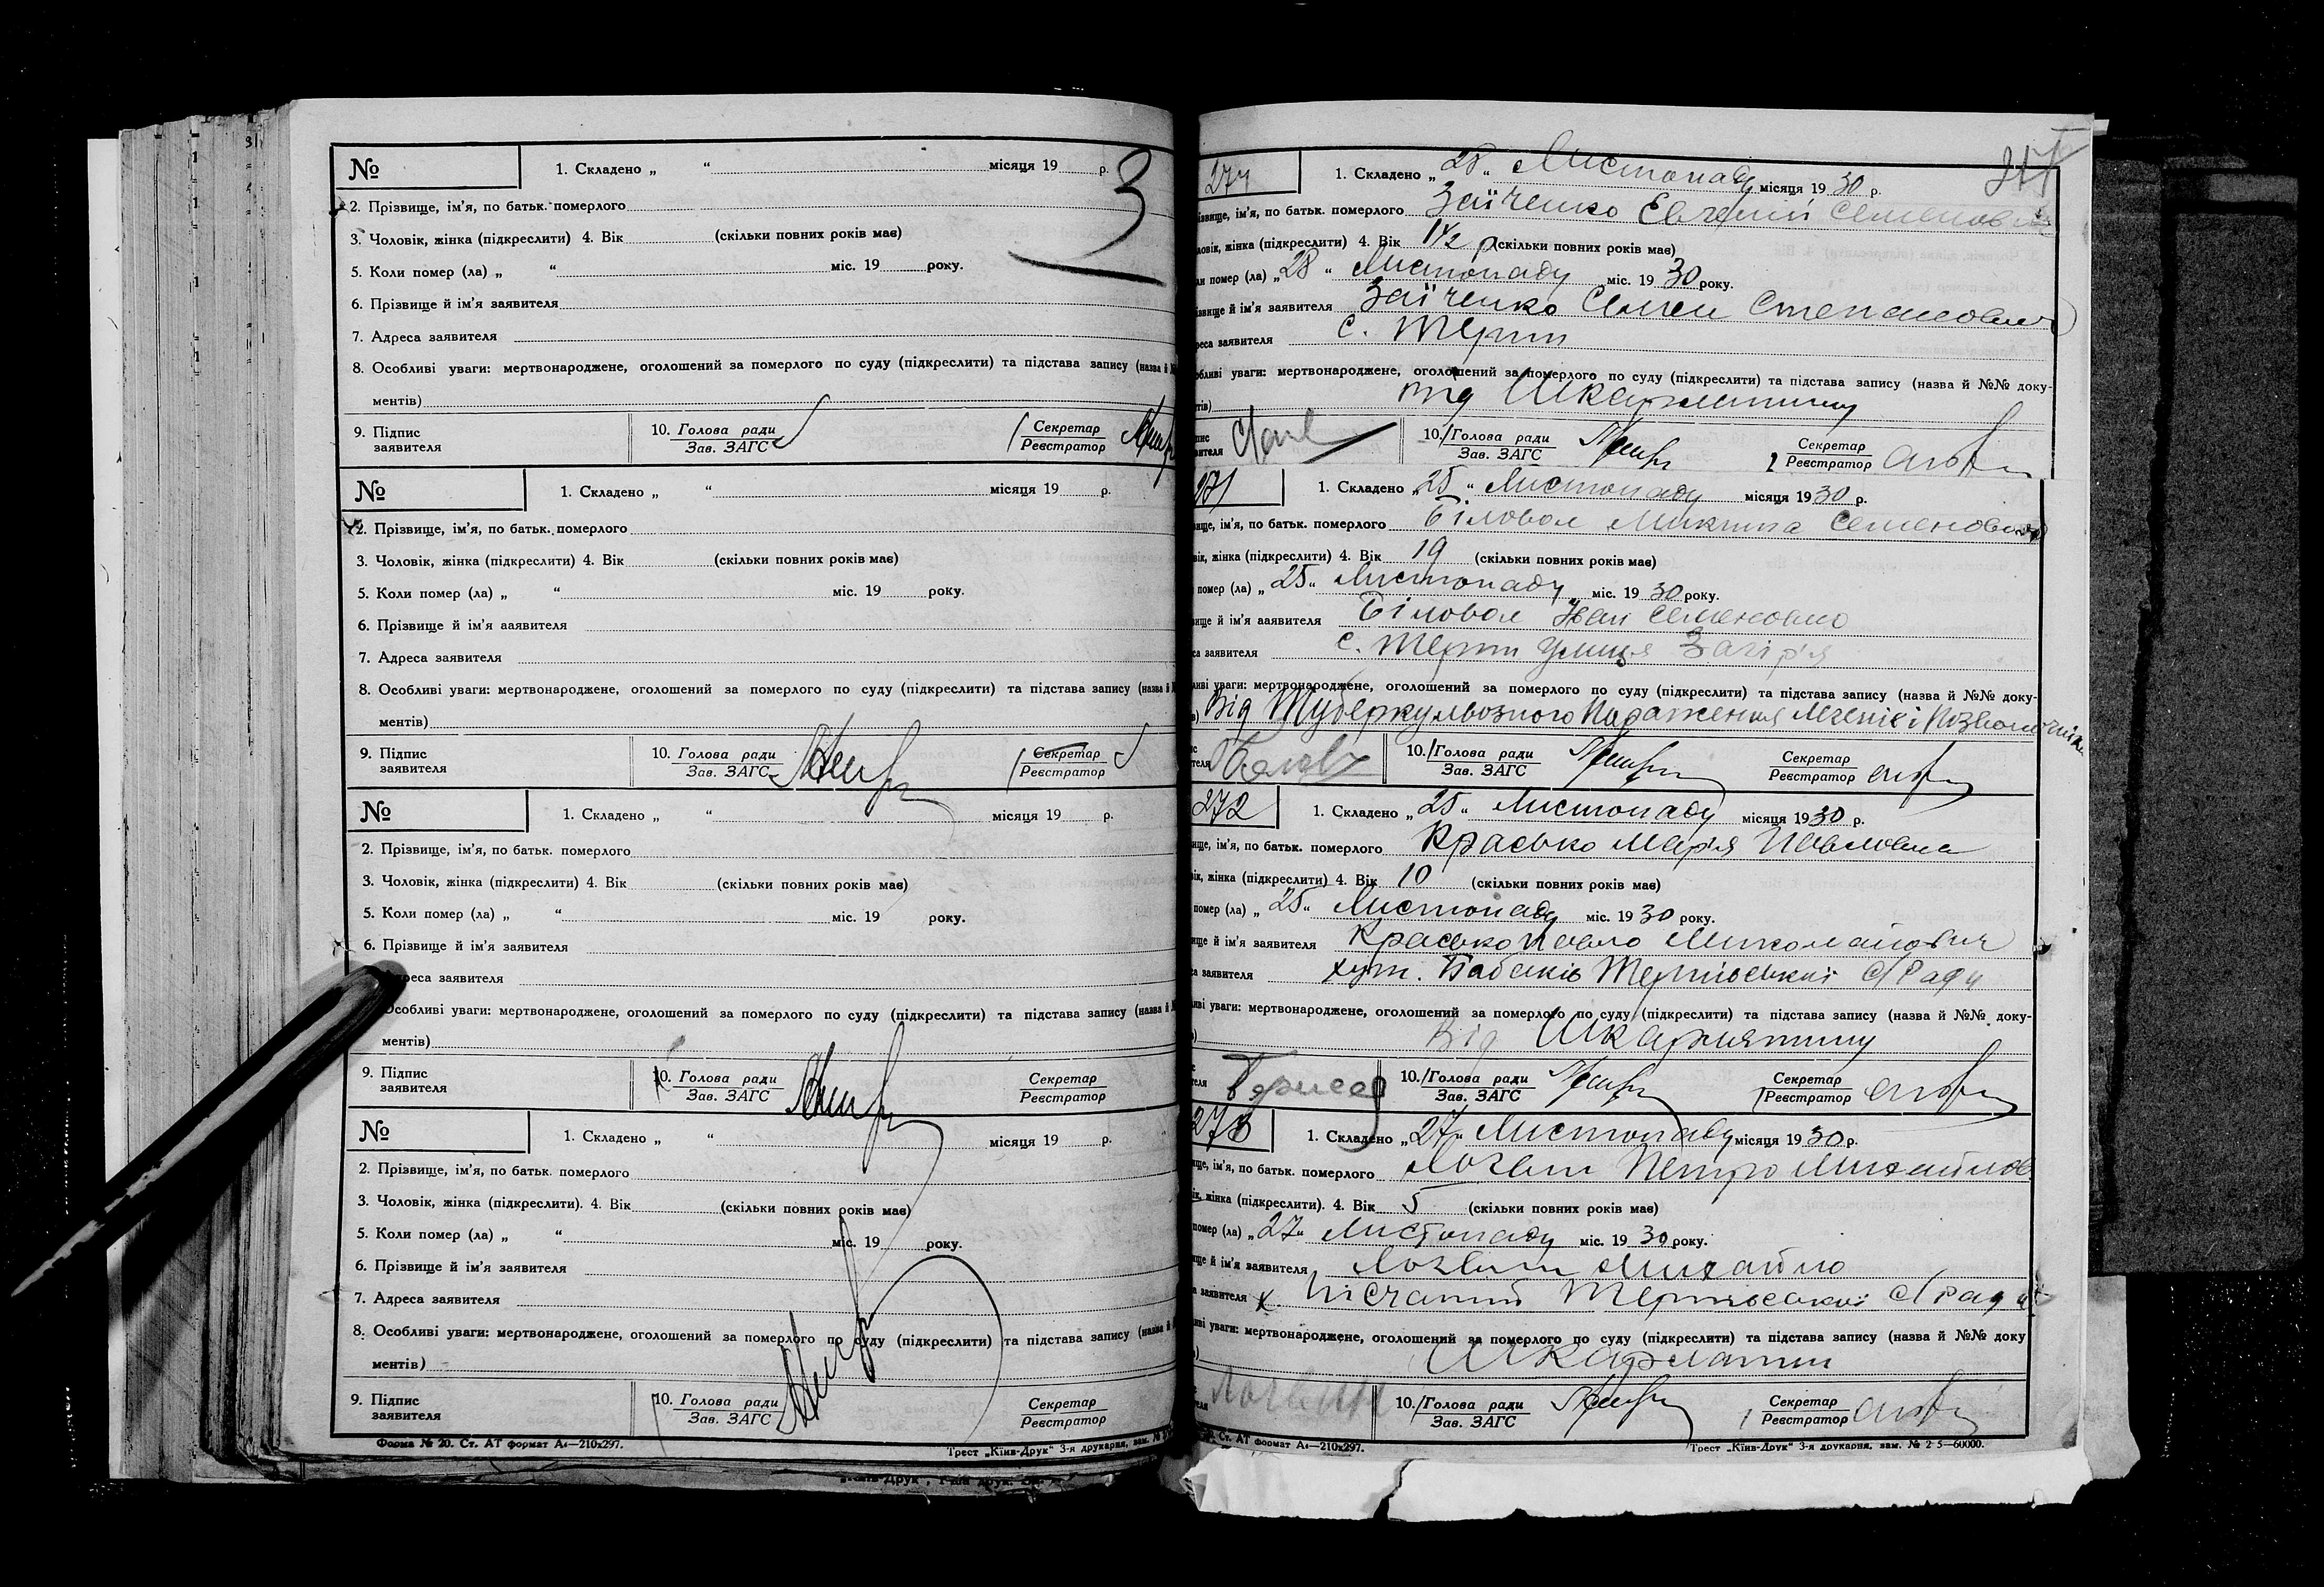 № 1. Складено „ “ місяця 19 р. 3
2. Прізвище, ім'я, по батьк. померлого
3. Чоловік, жінка (підкреслити) 4. Вік (скільки повних років має)
5. Коли помер (ла) „ “ міс. 19 року.
6. Прізвище й ім'я заявителя
7. Адреса заявителя
8. Особливі уваги: мертвонароджене, оголошений за померлого по суду (підкреслити) та підстава запису (назва й
ментів)
9. Підпис заявителя 10. Голова ради Зав. ЗАГС Секретар Реєстратор
№ 1. Складено „ “ місяця 19 р.
2. Прізвище, ім'я, по батьк. померлого
3. Чоловік, жінка (підкреслити) 4. Вік (скільки повних років має)
5. Коли помер (ла) „ “ міс. 19 року.
6. Прізвище й ім'я ааявителя
7. Адреса заявителя
8. Особливі уваги: мертвонароджене, оголошений за померлого по суду (підкреслити) та підстава запису (назва й
ментів)
9. Підпис заявителя 10. Голова ради Зав. ЗАГС Секретар Реєстратор
№ 1. Складено „ “ місяця 19 р.
2. Прізвище, ім'я, по батьк. померлого
3. Чоловік, жінка (підкреслити) 4. Вік (скільки повних років має)
5. Коли помер (ла) „ “ міс. 19 року.
6. Прізвище й ім'я заявителя
реса заявителя
Особливі уваги: мертвонароджене, оголошений за померлого по суду (підкреслити) та підстава запису (назва й
ментів)
9. Підпис заявителя 10. Голова ради Зав. ЗАГС Секретар Реєстратор
№ 1. Складено „ “ місяця 19 р.
2. Прізвище, ім'я, по батьк. померлого
3. Чоловік, жінка (підкреслити). 4. Вік (скільки повних років має)
5. Коли помер (ла) „ “ міс. 19 року.
6. Прізвище й ім'я заявителя
7. Адреса заявителя
8. Особливі уваги: мертвонароджене, оголошений за померлого по суду (підкреслити) та підстава запису (назва й
ментів)
9. Підпис заявителя 10. Голова ради Зав. ЗАГС Секретар Реєстратор
Форма № 20. Ст. АТ формат А4—210x297. Трест „Київ-Друк“ 3-я друкарня, зам. №
274 1. Складено „28“ Листопаду місяця 1930 р.
ізвище, ім'я, по батьк. померлого Заїченко Евгений Семенович
ловік, жінка (підкреслити) 4. Вік 1 1/2 р (скільки повних років має)
ли помер (ла) „28“ Листопаду міс. 1930 року.
ізвище й ім'я заявителя Заїченко Семен Степанович
реса заявителя с. Терни
обливі уваги: мертвонароджене, оголошений за померлого по суду (підкреслити) та підстава запису (назва й №№ доку-
тів) від Шкарлятини
пис вителя 10. Голова ради Зав. ЗАГС Секретар Реєстратор
271 1. Складено „25“ Листопаду місяця 1930 р.
вище, ім'я, по батьк. померлого Біловол Микита Семенович
вік, жінка (підкреслити) 4. Вік 19 (скільки повних років має)
помер (ла) „25“ Листопаду міс. 1930 року.
вище й ім'я ааявителя Біловол Іван Семенович
са заявителя с. Терни улиця Загір'я
ливі уваги: мертвонароджене, оголошений за померлого по суду (підкреслити) та підстава запису (назва й №№ доку-
в) Від Туберкульозного Пораження Легеніє і
10. Голова ради Зав. ЗАГС Секретар Реєстратор
272 1. Складено „25“ Листопаду місяця 1930 р.
вище, ім'я, по батьк. померлого Красько Мар'я Павловна
вік, жінка (підкреслити) 4. Вік 10 (скільки повних років має)
помер (ла) „25“ Листопаду міс. 1930 року.
вище й ім'я заявителя Красько Павло Миколайович
са заявителя хут. Бабаків Тернівської с/Ради
ливі уваги: мертвонароджене, оголошений за померлого по суду (підкреслити) та підстава запису (назва й №№ доку-
Від Шкарлятини
10. Голова ради Зав. ЗАГС Секретар Реєстратор
273 1. Складено „27“ Листопаду місяця 1930 р.
ище, ім'я, по батьк. померлого Логвин Петро Михайлов
ік, жінка (підкреслити). 4. Вік 5 (скільки повних років має)
помер (ла) „27“ Листопаду міс. 1930 року.
ище й ім'я заявителя Логвин Михайло
а заявителя х. Пісчаний Тернівської с/ради
иві уваги: мертвонароджене, оголошений за померлого по суду (підкреслити) та підстава запису (назва й №№ доку
Шкарлатин
Логвин 10. Голова ради Зав. ЗАГС Секретар Реєстратор
Ст. АТ формат А4—210x297. Трест „Київ-Друк“ 3-я друкарня, зам. № 2 5—60000.